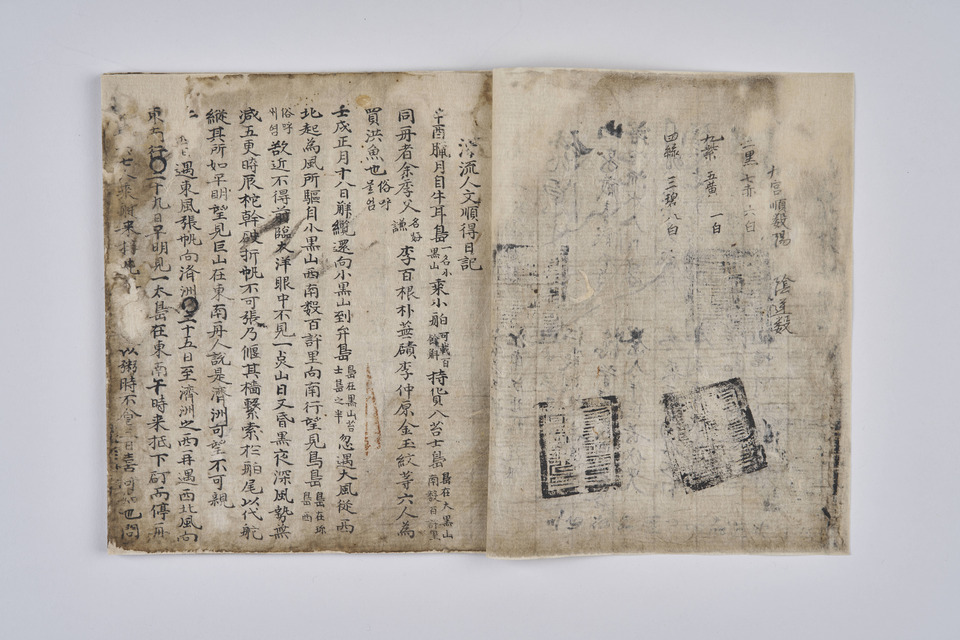 九宮順殺陽 陰逆殺
二黒 七赤 六白
九紫 五黃 一白
四綠 三碧 八白
漂流人文順得日記
辛酉臘月自牛耳島一名小黒山乘小舶可載百餘斛持貨入苔士島島在大黒山南數百許里
同舟者余季父名好謙李百根朴無磧李仲原金玉紋等六人為
買洪魚也俗呼
壬戌正月十八日解纜還向小黒山到弁島島在黒山苔士島之半忽遇大風從西
北起為風所驅自小黒山西南數百許里向南行望見鳥島島在珍島西
俗呼 欲近不得前臨大洋眼中不見一点山日又昏黒夜深風勢無
减五更時辰柁幹破折帆不可張乃偃其檣繫索於舶尾以代航
縱其所如早明望見巨山在東南舟人說是濟洲可望不可親
遇東風張帆向済洲○二十五日至濟洲之西再遇西北風向
東南行○二十九日早明見一大島在東南午時来抵下矴而停舟
七八 来 以粥時不 日 也問